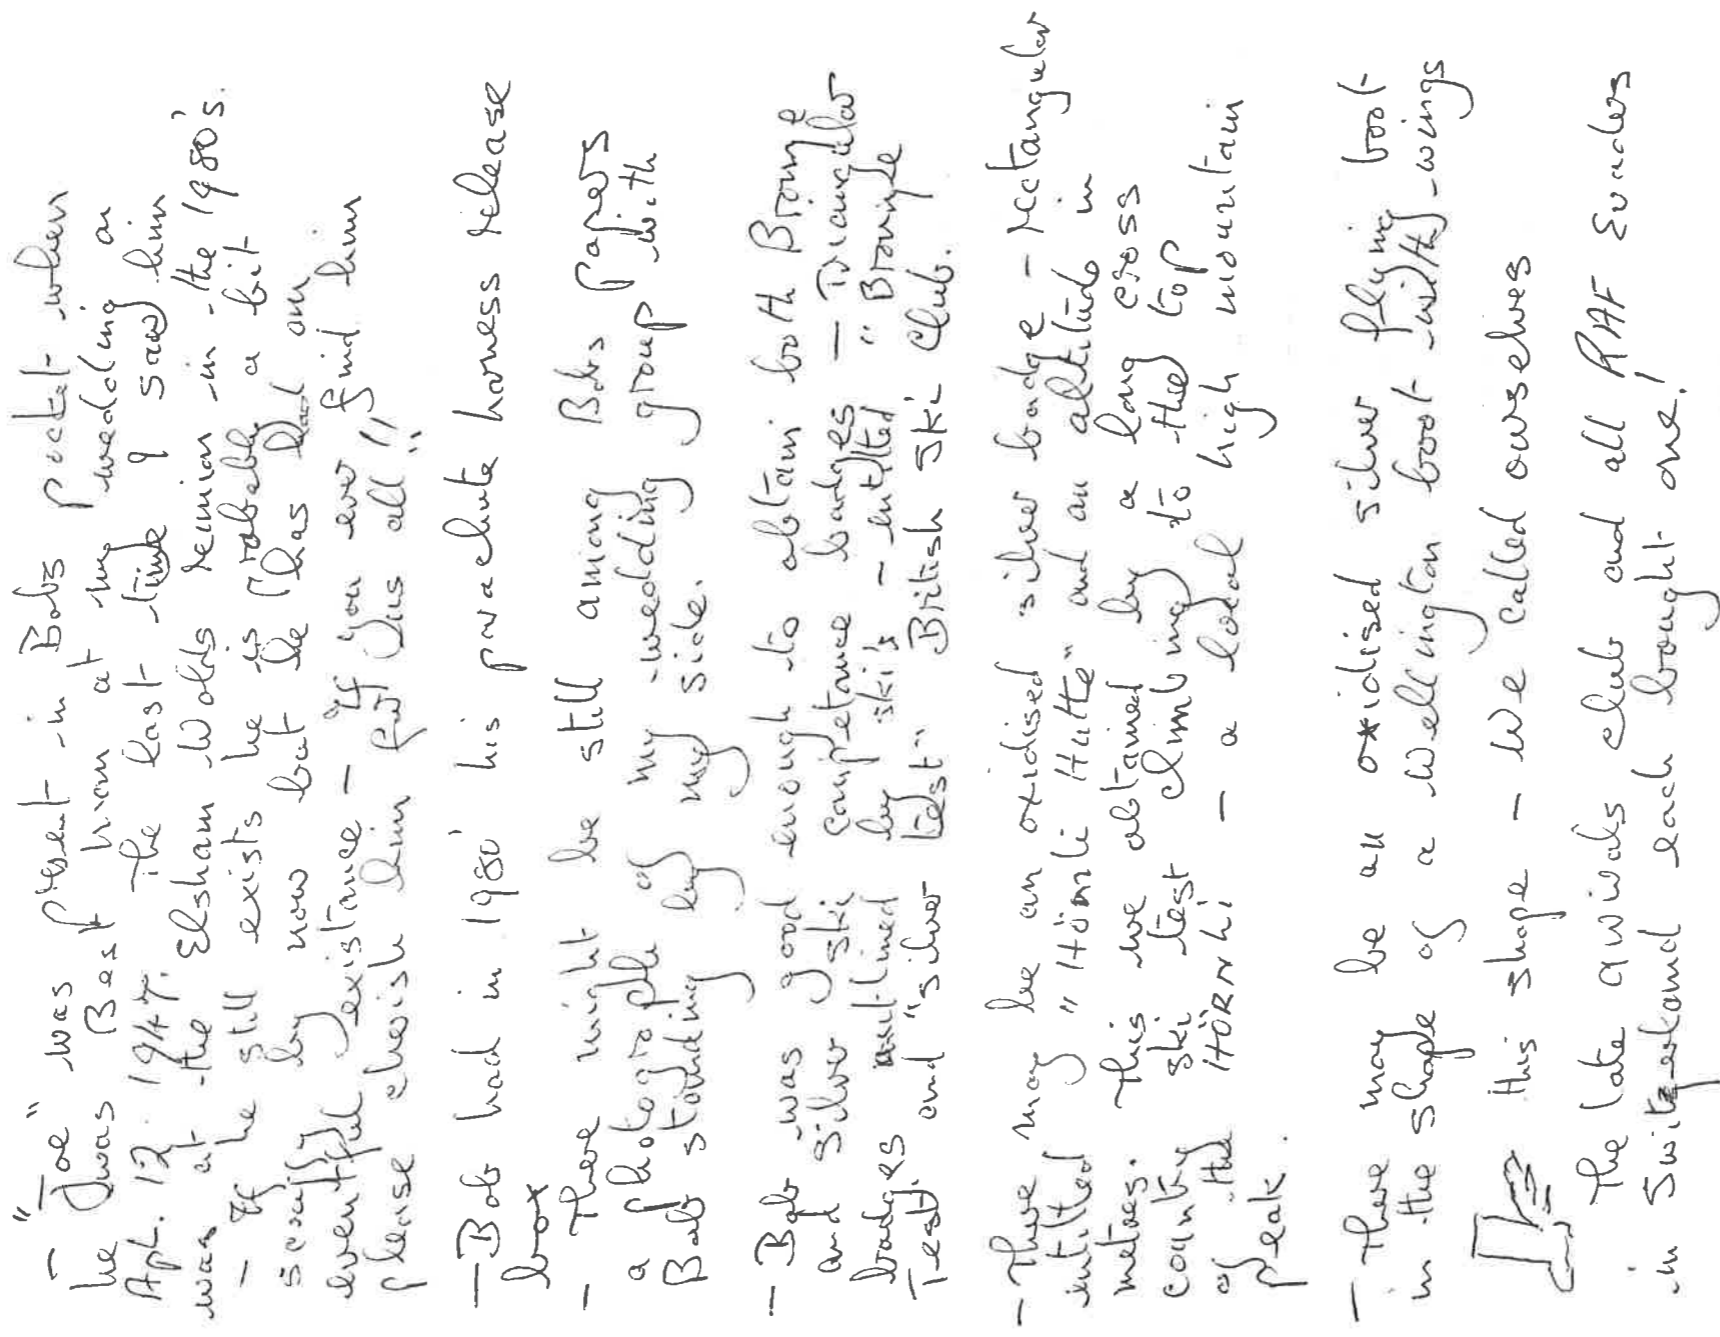 "Joe" was present in Bobs pocket when
he was Best man at my wedding on
Apl. 12. 1947. The last time I saw him
was at the Elsham Wolds reunion in the 1980's.
- If he still exists he is probably a bit
scruffy by now but he has had an
eventful existance - "If you ever find him
please cherish him for us all"
- Bob had in 1980' his parachute harness release
box
- There might be still among Bobs papers
a photograph of my wedding group with
Bob standing by my side.
- Bob was good enough to obtain both Bronze
and silver ski competance badges - Triangular
badges outlined by ski's - entitled "Bronze
Test" and "silver test" British Ski Club.
- There may be an oxidised silver badge - rectangular
intitled "Hörnli Hütte" and an altitude in
metres. This we obtained by a long cross
country ski test climbing to the top
of the HÖRNLI - a local high mountain
peak.
- There may be an oxidised silver flying boot
in the shape of a wellington boot with wings
this shape - We called ourselves
The late arrivals club and all RAF Evaders
in Switzerland each bought one!